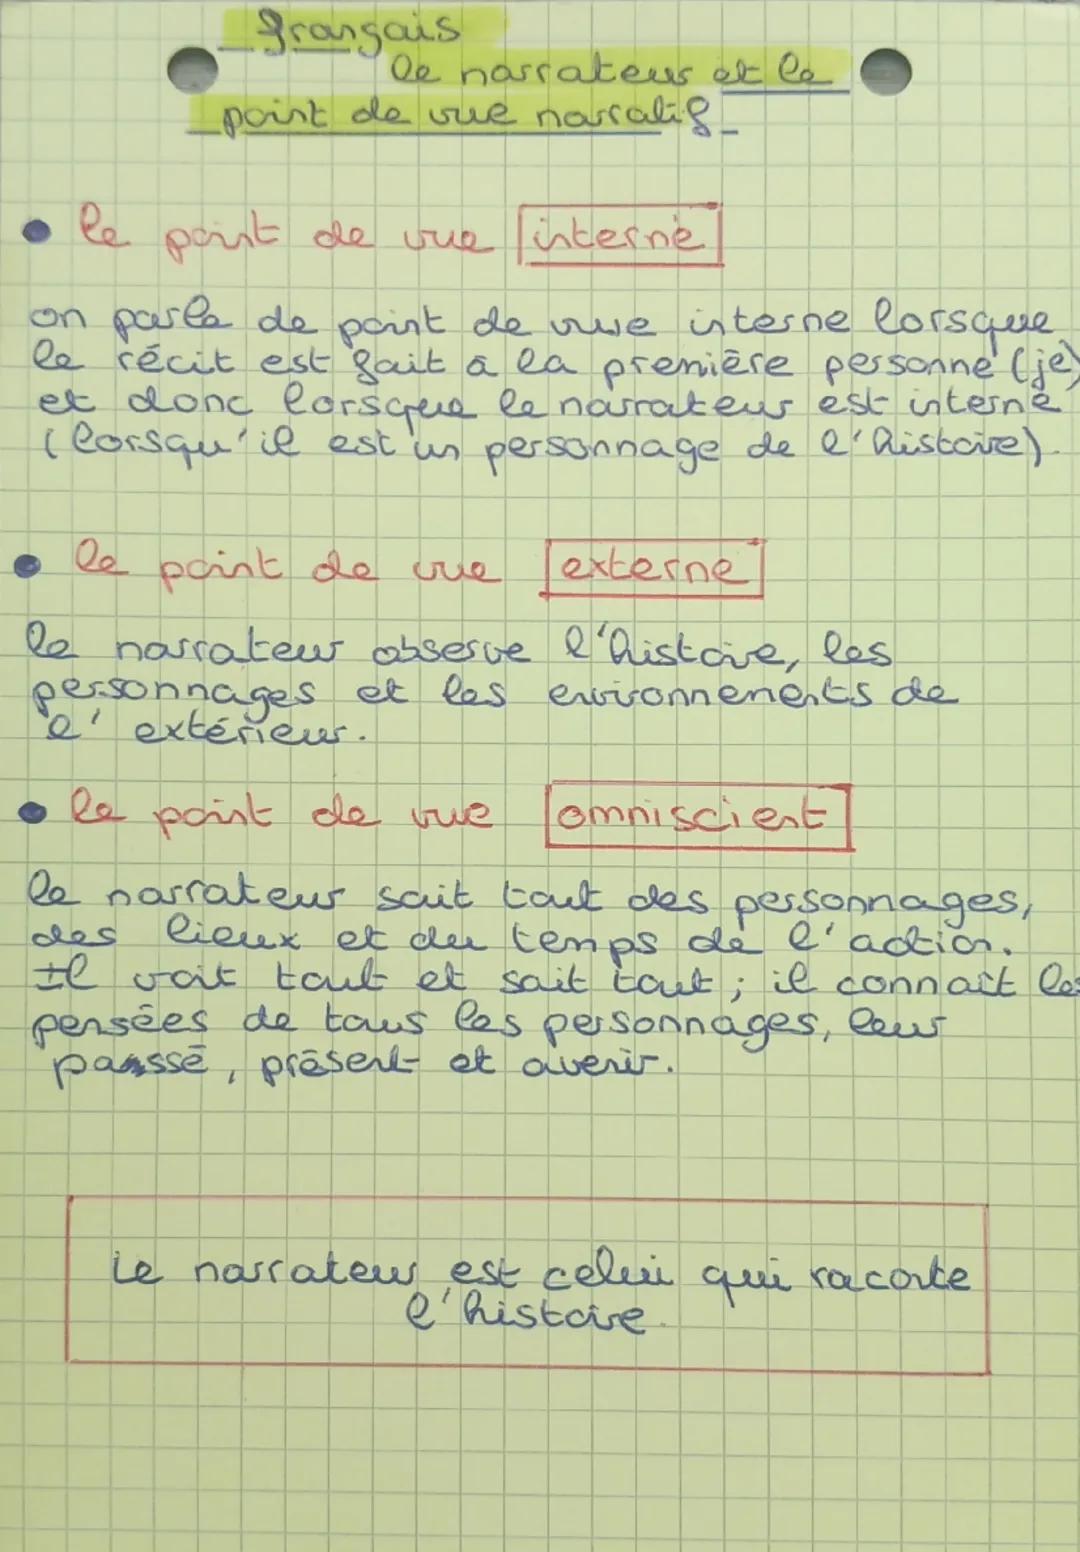 français
le narrateur et le
point de vue narratif
le point de vue interne
on parle de point de vue interne lorsque
le récit est fait à la première personne (je)
et donc lorsque le narrateur est interne
(lorsqu'il est un personnage de l'histoire).
le point de vue externe
le narrateur observe l'histoire, les
personnages et les environnements de
l'extérieur.
le point de vue omniscient
le narrateur sait tout des personnages,
des lieux et du temps de l'action.
Il voit tout et sait tout ; il connaît les
pensées de tous les personnages, leur
passé, présent et avenir.
Le narrateur est celui qui raconte
l'histoire.